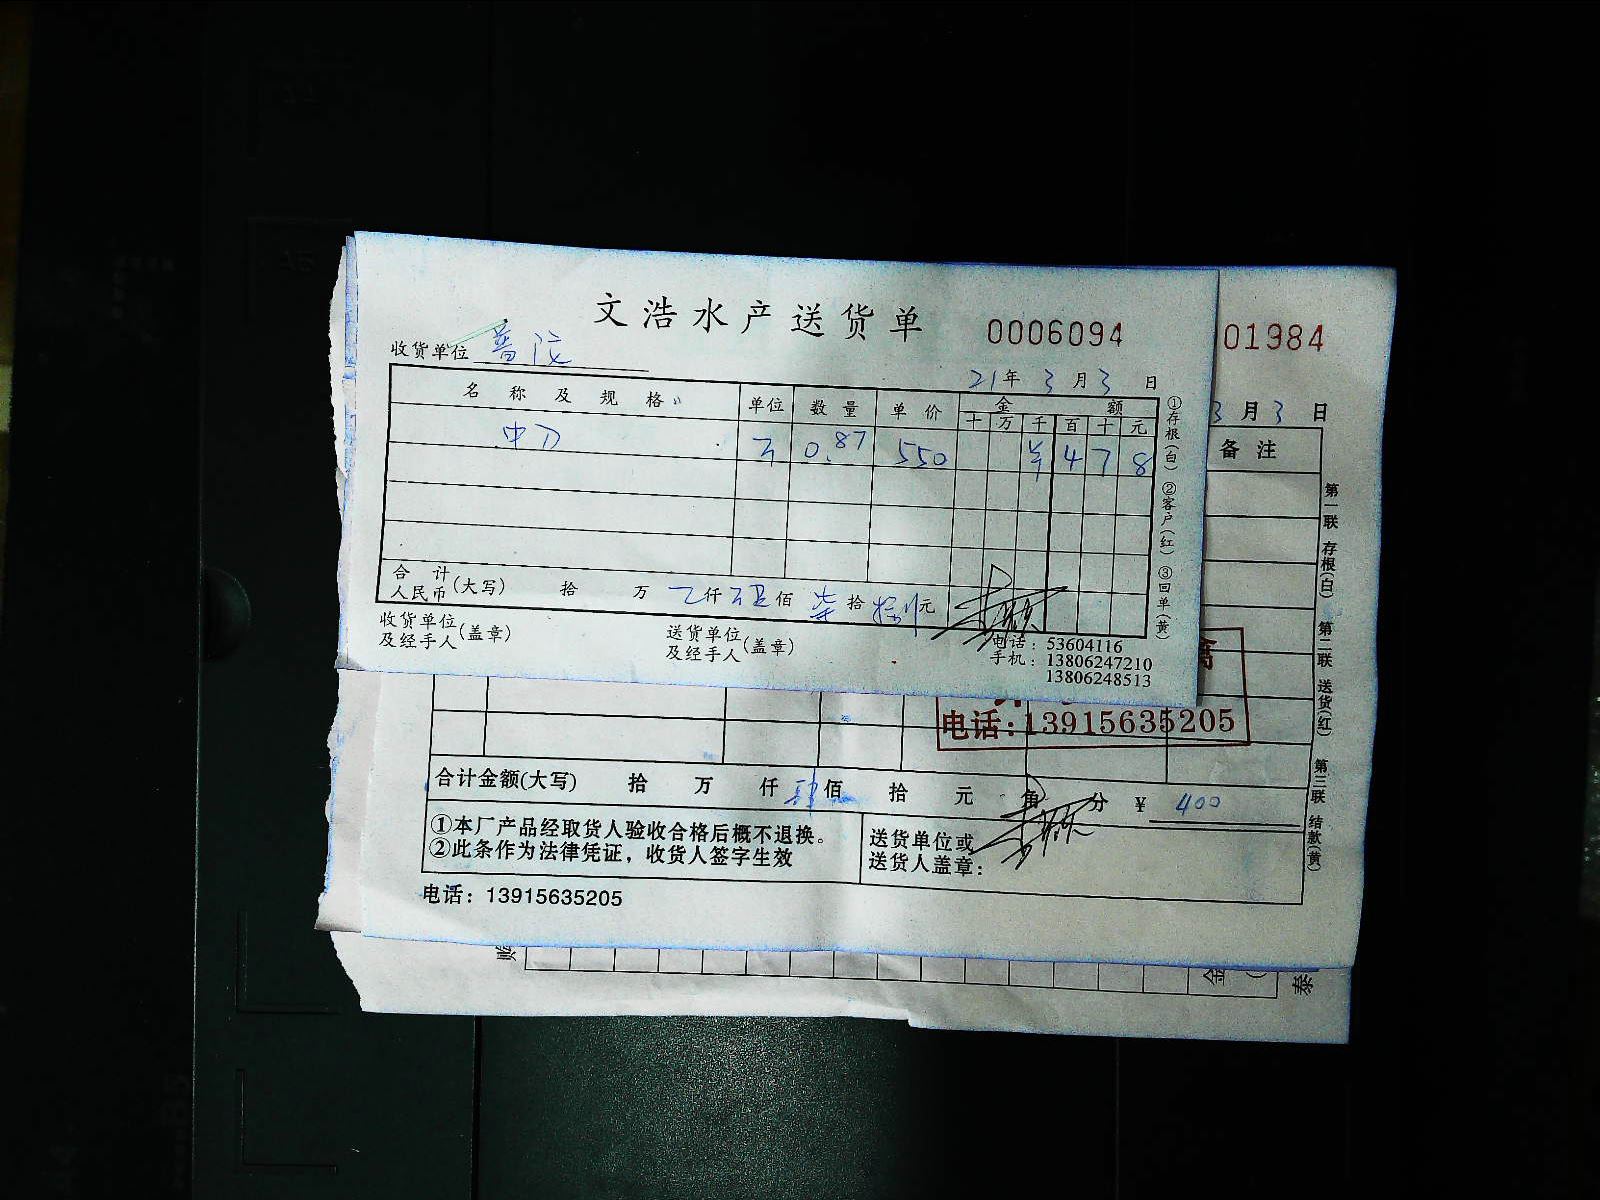 文浩水产送货单
0006094
收货单位 普陀
21年 3月 3日
名称及规格 单位 数量 单价 金额
十 万 千 百 十 元
中刀 0.87 550 ¥ 4 7 8
①存根(白) ②客户(红) ③回单(黄)
合计
人民币(大写) 拾 万 仟 佰 柒拾 捌元
收货单位
及经手人(盖章)
送货单位
及经手人(盖章)
电话:53604116
手机:13806247210
13806248513
01984
3月3日
备注
第一联 存根(白) 第二联 送货(红) 第三联 结款(黄)
电话:13915635205
合计金额(大写) 拾 万 仟 肆佰 拾 元 角 分 ¥ 400
①本厂产品经取货人验收合格后概不退换。
②此条作为法律凭证，收货人签字生效
送货单位或
送货人盖章:
电话: 13915635205
金
泰